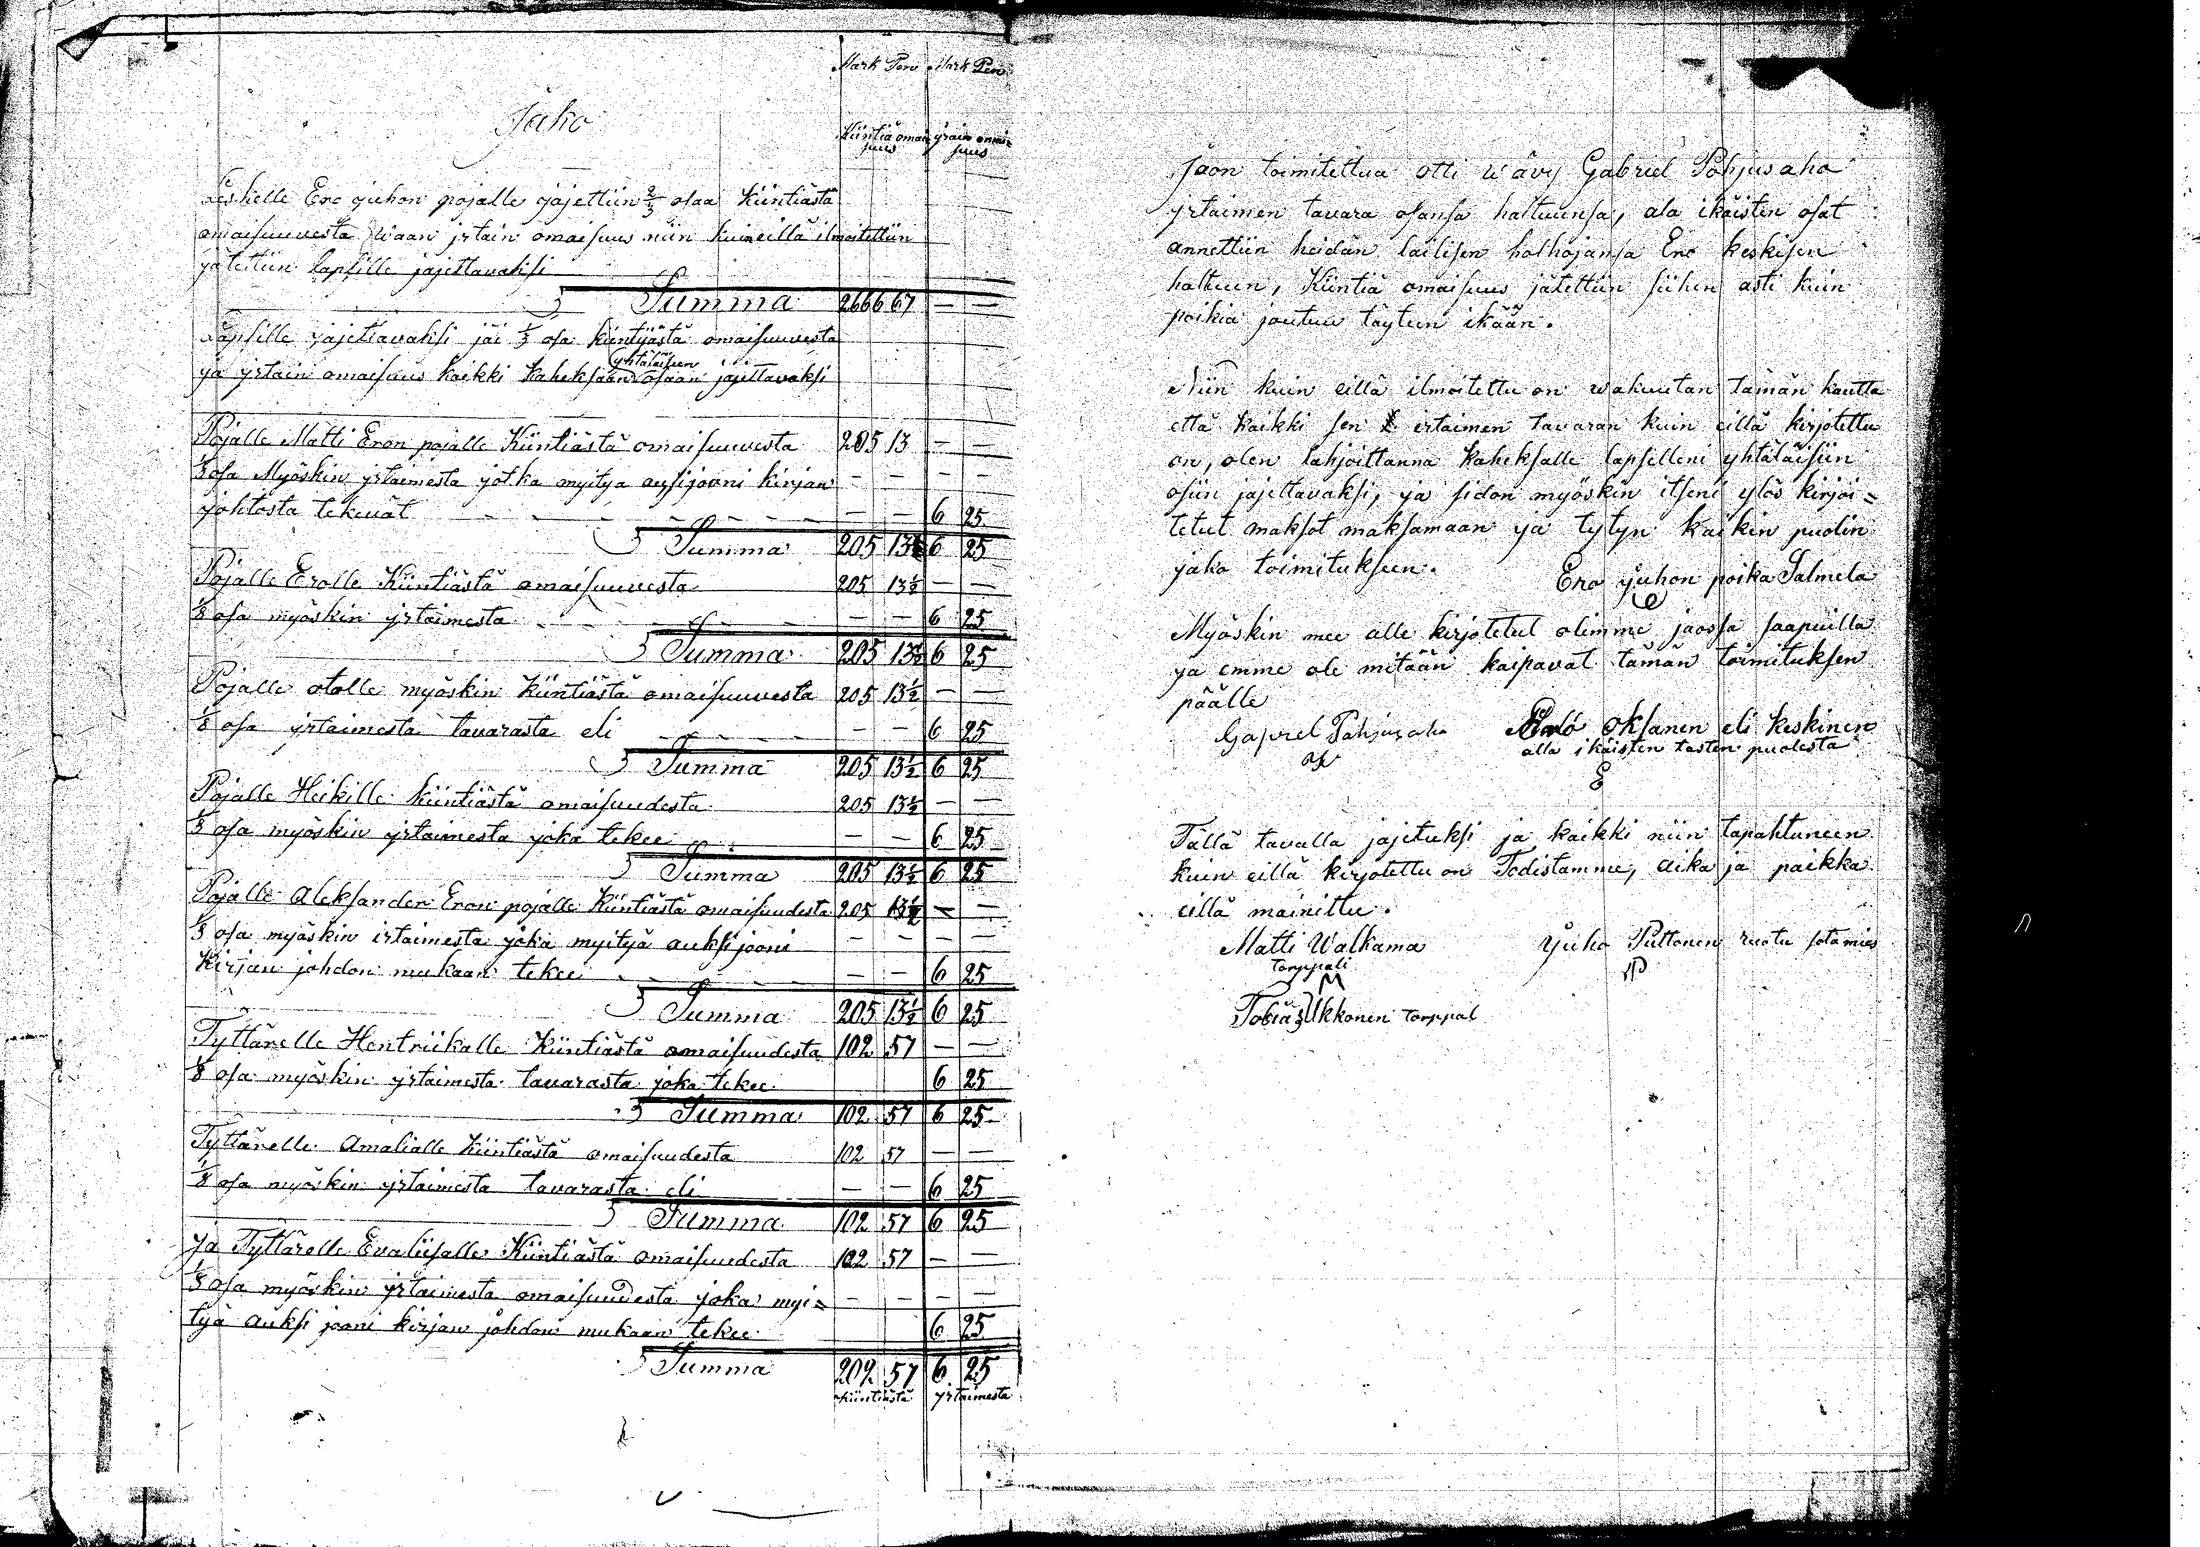 Mark Pen Mark Pen
Jako
Kiintiä omai yrtain omai=
suus suus
Leskelle Ero juhon pojalle jajettiin 2/3 osaa Kiintiästä
omaisuuvesta Waan yrtain omaisuus niin kuin eillä ilmoitettiin
jätettiin lapsille jajettavaksi
Summa 2666 67 — —
Lapsille jajettavaksi jäi 1/3 osa kiintijästä omaisuuvesta
yhtäläiseen
ja yrtain omaisuus kaikki kaheksaan osaan jajettavaksi
Pojalle Matti Eron pojalle Kiintiästä omaisuuvesta 205 13 — —
1/8 osa Myöskin yrtaimesta jotka myitya auksijooni kirjan — — — —
johtosta tekevät — — 6 25
Summa 205 13½ 6 25
Pojalle Erolle Kiintiästä omaisuuvesta 205 13½ — —
1/8 osa myöskin yrtaimesta — — 6 25
Summa 205 13½ 6 25
Pojalle otolle myöskin Kiintiästä omaisuuvesta 205 13½ — —
1/8 osa yrtaimesta tavarasta eli — — 6 25
Summa 205 13½ 6 25
Pojalle Heikille kiintiästä omaisuudesta 205 13½ — —
1/8 osa myöskin yrtaimesta joka tekee — — 6 25
Summa 205 13½ 6 25
Pojalle Aleksander Eron pojalle Kiintiästä omaisuudesta 205 13½ — —
1/8 osa myöskin irtaimesta joka myityä auksijooni — — — —
Kirjan johdon mukaan tekee — — 6 25
Summa 205 13½ 6 25
Tyttärelle Hentriikalle Kiintiästä omaisuudesta 102 57 — —
1/8 osa myöskin yrtaimesta tavarasta joka tekee 6 25
Summa 102 57 6 25
Tyttärelle Amalialle Kiintiästä omaisuudesta 102 57 — —
1/8 osa myöskin yrtaimesta tavarasta eli — — 6 25
Summa 102 57 6 25
Ja Tyttärelle Evaliisalle Kiintiästä omaisuudesta 102 57 — —
1/8 osa myöskin yrtaimesta omaisuudesta joka myi= — — — —
tyä auksi jooni kirjan johdon mukaan tekee 6 25
Summa 202 57 6 25
kiintiästä yrtaimesta
Jaon toimitettua otti wävy Gabriel Pohjusaho
yrtaimen tavara osansa haltuunsa, ala ikäisten osat
annettiin heidän laillisen holhojansa Ero keskisen
haltuun, Kiintiä omaisuus jätettiin siihen asti kuin
poikia joutuu täyteen ikään.
Niin kuin eillä ilmoitettu on wakuutan tämän kautta
että kaikki sen irtaimen tavaran kuin eillä kirjotettu
on, olen lahjoittanna kaheksalle lapsilleni yhtäläisiin
osiin jajettavaksi, ja sidon myöskin itseni ylös kirjoi=
tetut maksot maksamaan ja tytyn kaikin puolin
jako toimitukseen.
Ero juhon poika Salmela
Myöskin mee alle kirjotetut olimme jaossa saapuilla
ja emme ole mitään kaipavat tämän toimituksen
päälle
Gaprel Pohjusaho Ero Oksanen eli Keskinen
alla ikäisten lasten puolesta
E
Tällä tavalla jajetuksi ja kaikki niin tapahtuneen
kuin eillä kirjotettu on Todistamme, aika ja paikka
eillä mainittu.
Matti Walkama Juho Puttonen ruotu sotamies
torppali
M
Tobias Ukkonen torppal